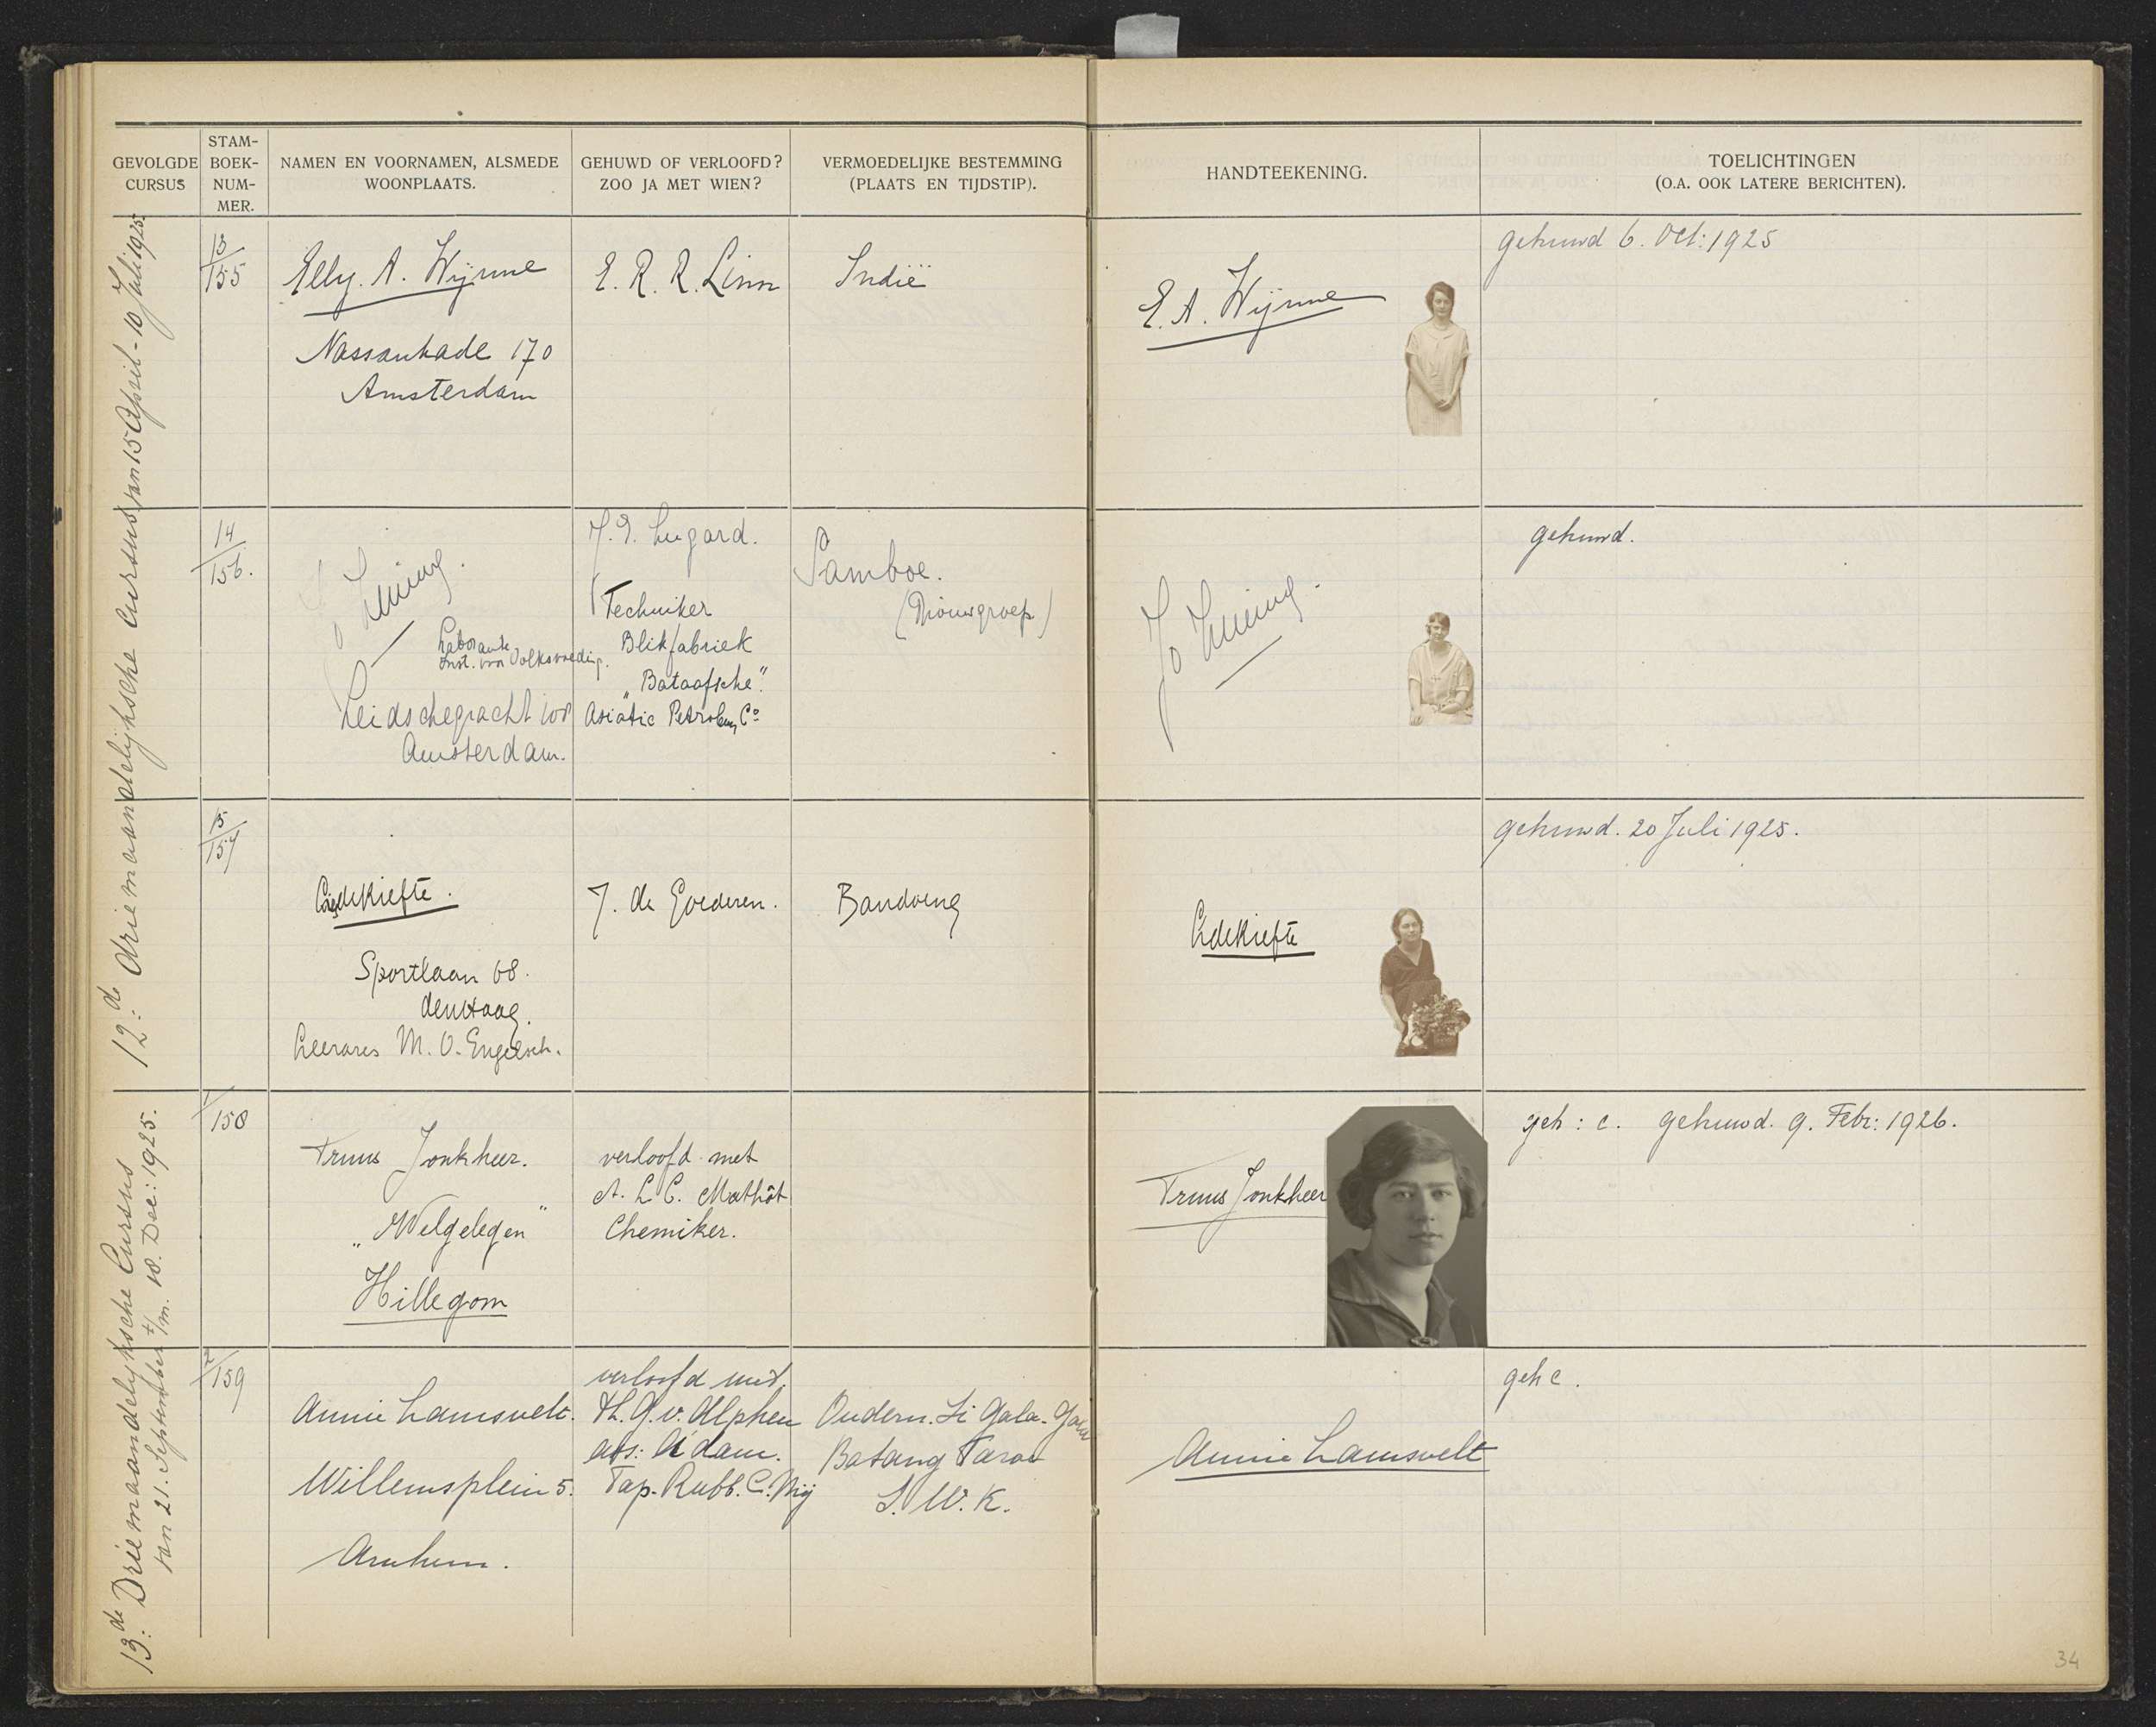 GEVOLGDE
CURSUS
STAM-
BOEK-
NUM-
MER.
NAMEN EN VOORNAMEN, ALSMEDE
WOONPLAATS.
GEHUWD OF VERLOOFD?
ZOO JA MET WIEN?
VERMOEDELIJKE BESTEMMING
(PLAATS EN TIJDSTIP).
HANDTEEKENING.
TOELICHTINGEN
(O.A. OOK LATERE BERICHTEN).
12de driemaandelijksche Cursus van 15 April - 10 Juli 1925.
13/155
Elly. A. Wijnne
Nassaukade 170
Amsterdam
E. R. R. Linn
Indië
E. A. Wijnne
gehuwd 6. Oct: 1925
14/156.
Jo
Laborante
Inst. voor Volksvoeding.
Leidschegracht 108
Amsterdam.
Lugard.
Techniker
Blikfabriek
"Bataafsche".
Asiatic Petroleum Co
Samboe.
(Riouwgroep)
Jo
gehuwd.
15/157
de Kiefte.
Sportlaan 68.
den Haag.
Leerares M. O. Engelsch.
J. de Goederen.
Bandoeng
de Kiefte
gehuwd. 20 Juli 1925.
13de Driemaandelijksche Cursus
van 21. September t/m. 18. Dec: 1925.
1/158
Truus Jonkheer.
"Welgelegen"
Hillegom
verloofd met
A. L C. Mathôt
Chemiker.
Truus Jonkheer
geh: c. gehuwd. 9. Febr: 1926.
2/159
Annie Lamsvelt.
Willemsplein 5.
Arnhem.
verloofd met.
Th. G. v. Alphen
ass: A'dam.
Tap. Rubb. C. Mij
Ondern. Si Gala-
Batang Taroe
S. W. K.
Annie Lamsvelt
geh c.
34